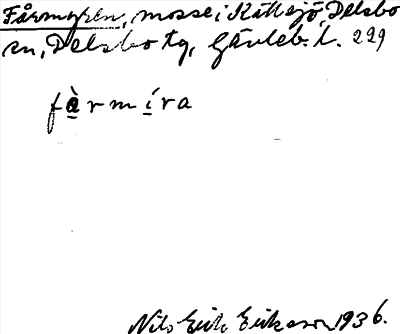 Fårmyren, mosse i Kättsjö, Delsbo
sn, Delsbo tg, Gävleb. l. 229
fàrmíra
Nils Erik Eriksson 1936.